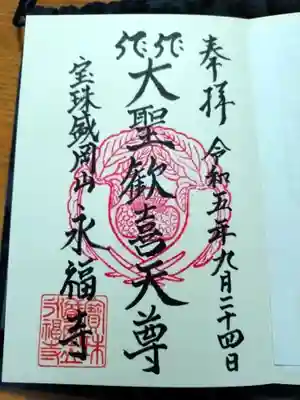 奉拝 令和五年九月二十四日
大聖歡喜天尊
宝珠盛岡山 永福寺